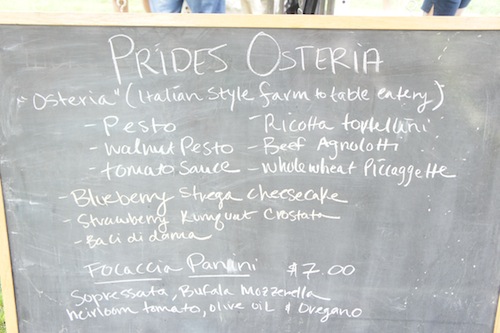 PRIDES OSTERIA
"Osteria" (Italian style farm to table eatery)
- Pesto - Ricotta tortellini
- walnut Pesto - Beef Agnolotti
- tomato sauce - whole wheat Piccaggette
- Blueberry Strega cheesecake
- Strawberry Kumquat Crostata
- Baci di dama
FOCACCIA Panini $7.00
Sopressata, Bufala Mozzerella
heirloom tomato, olive oil & oregano